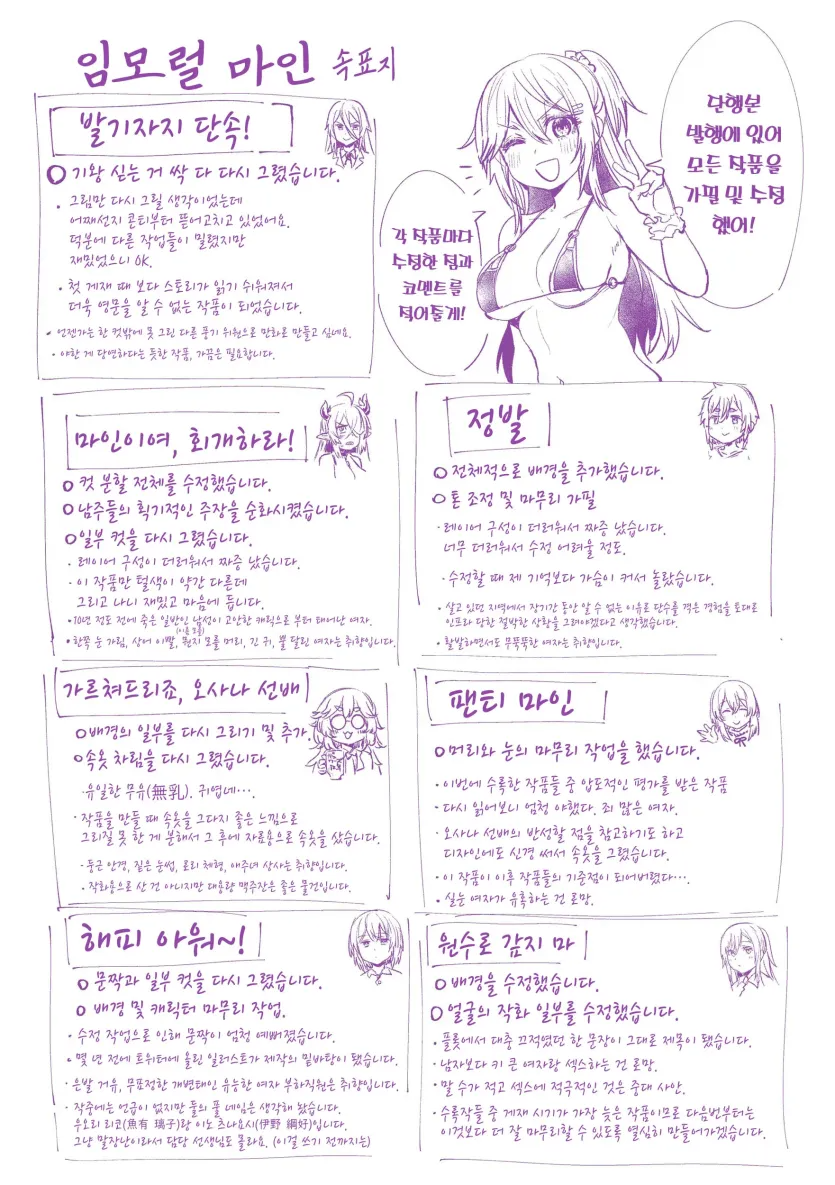 임모럴 마인 속표지
단행본
발행에 있어
모든 작품을
가필 및 수정
했어!
각 작품마다
수정한 점과
코멘트를
적어줄게!
발기자지 단속!
기왕 싣는 거 싹 다 다시 그렸습니다.
그림만 다시 그릴 생각이었는데
어째선지 콘티부터 뜯어고치고 있었어요.
덕분에 다른 작업들이 밀렸지만
재밌었으니 OK.
첫 게재 때 보다 스토리가 읽기 쉬워져서
더욱 영문을 알 수 없는 작품이 되었습니다.
언젠가는 한 컷밖에 못 그린 다른 풍기 위원으로 만화로 만들고 싶네요.
야한 게 당연하다는 듯한 작품, 가끔은 필요합니다.
마인이여, 회개하라!
컷 분할 전체를 수정했습니다.
남주들의 획기적인 주장을 순화시켰습니다.
일부 컷을 다시 그렸습니다.
레이어 구성이 더러워서 짜증 났습니다.
이 작품만 털색이 약간 다른데
그리고 나니 재밌고 마음에 듭니다.
10년 정도 전에 죽은 일반인 남성이 고안한 캐릭으로 부터 태어난 여자.
한쪽 눈 가림, 상어 이빨, 뭔지 모를 머리, 긴 귀, 뿔 달린 여자는 취향입니다.
정발
전체적으로 배경을 추가했습니다.
톤 조정 및 마무리 가필
레이어 구성이 더러워서 짜증 났습니다.
너무 더러워서 수정 어려울 정도.
수정할 때 제 기억보다 가슴이 커서 놀랐습니다.
살고 있던 지역에서 장기간 동안 알 수 없는 이유로 단수를 겪은 경험을 토대로
인프라 단한 절박한 상황을 그려야겠다고 생각했습니다.
활발하면서도 무뚝뚝한 여자는 취향입니다.
가르쳐드리죠, 오사나 선배
배경의 일부를 다시 그리기 및 추가.
속옷 차림을 다시 그렸습니다.
유일한 무유(無乳). 귀엽네….
작품을 만들 때 속옷을 그다지 좋은 느낌으로
그리질 못 한 게 분해서 그 후에 자료용으로 속옷을 샀습니다.
둥근 안경, 짙은 눈썹, 로리 체형, 애주녀 상사는 취향입니다.
작화용으로 산 건 아니지만 대용량 맥주잔은 좋은 물건입니다.
팬티 마인
머리와 눈의 마무리 작업을 했습니다.
이번에 수록한 작품들 중 압도적인 평가를 받은 작품
다시 읽어보니 엄청 야했다. 죄 많은 여자.
오사나 선배의 반성할 점을 참고하기도 하고
디자인에도 신경 써서 속옷을 그렸습니다.
이 작품이 이후 작품들의 기준점이 되어버렸다….
실눈 여자가 유혹하는 건 로망.
해피 아워~!
문짝과 일부 컷을 다시 그렸습니다.
배경 및 캐릭터 마무리 작업.
수정 작업으로 인해 문짝이 엄청 예뻐졌습니다.
몇 년 전에 트위터에 올린 일러스트가 제작의 밑바탕이 됐습니다.
은발 거유, 무표정한 개변태인 유능한 여자 부하직원은 취향입니다.
작중에는 언급이 없지만 둘의 풀 네임은 생각해 놨습니다.
우오리 리코(魚有 璃子)랑 이노 츠나요시(伊野 綱好)입니다.
그냥 말장난이라서 담당 선생님도 몰라요. (이걸 쓰기 전까지는)
원수로 감지 마
배경을 수정했습니다.
얼굴의 작화 일부를 수정했습니다.
플롯에서 대충 끄적였던 한 문장이 그대로 제목이 됐습니다.
남자보다 키 큰 여자랑 섹스하는 건 로망.
말 수가 적고 섹스에 적극적인 것은 중대 사안.
수록작들 중 게재 시기가 가장 늦은 작품이므로 다음번부터는
이것보다 더 잘 마무리할 수 있도록 열심히 만들어가겠습니다.